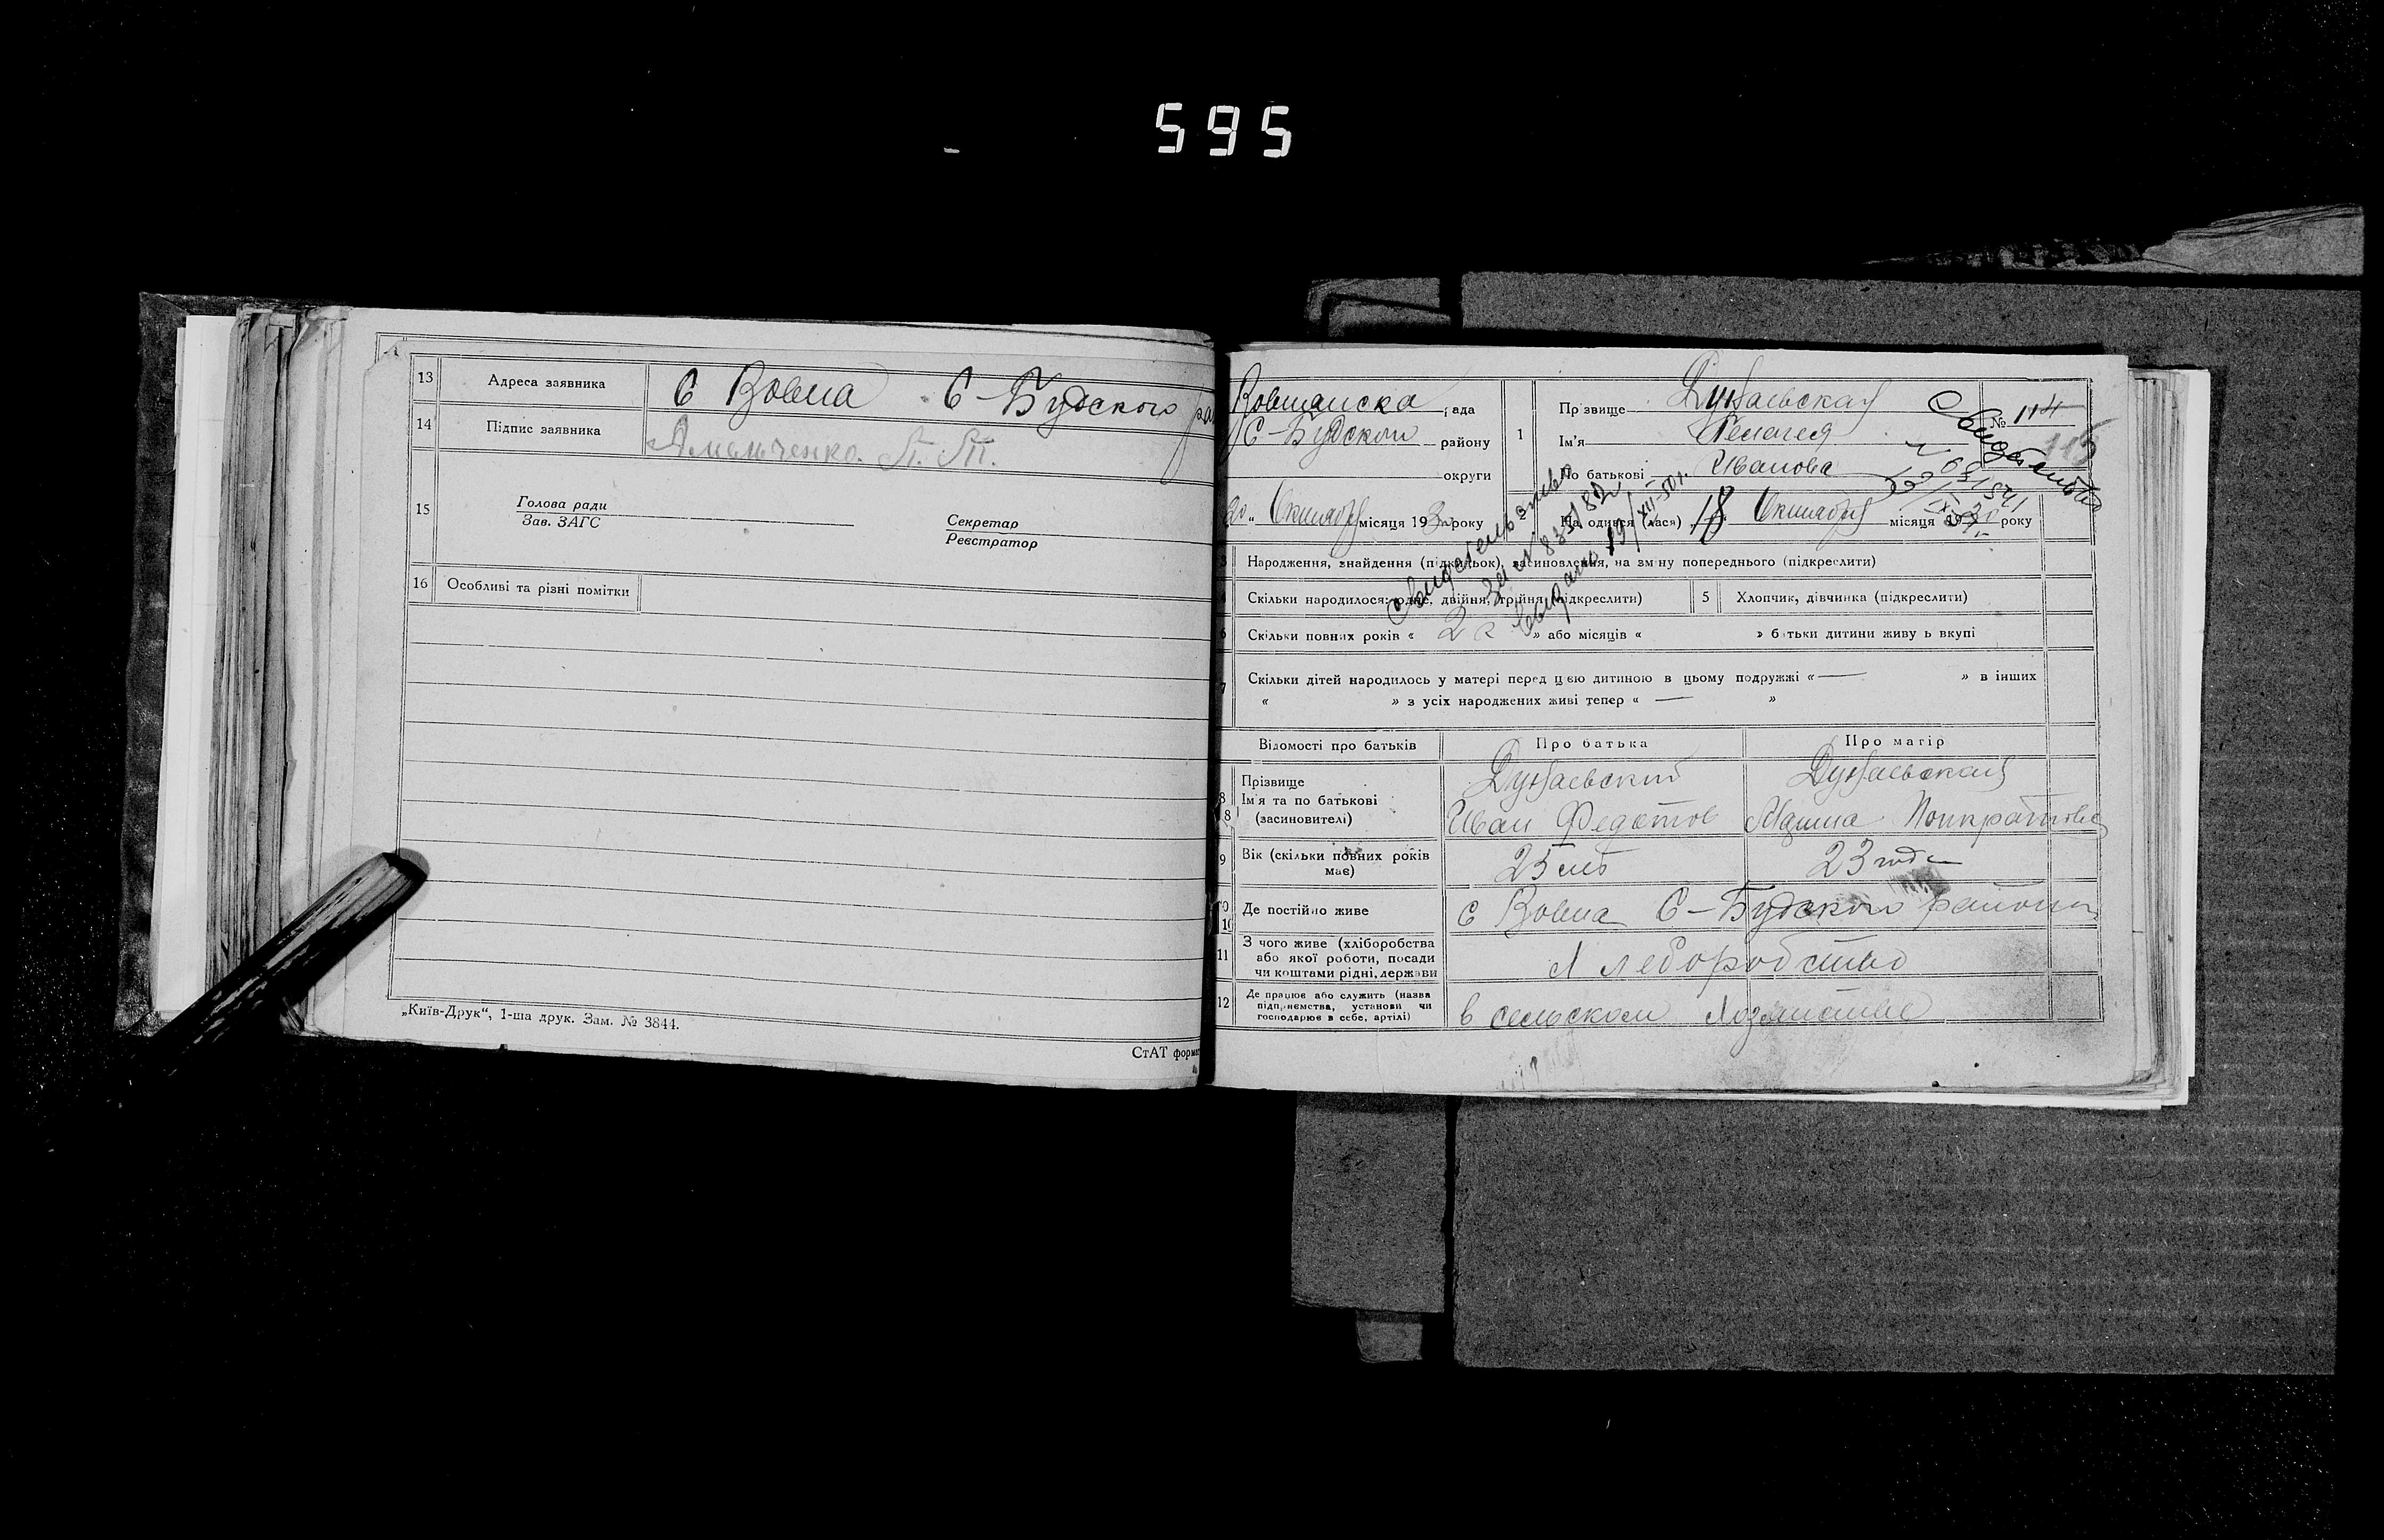 595
13 Адреса заявника С Вовна С-Будского
14 Підпис заявника
15 Голова ради
Зав. ЗАГС
Секретар
Реєстратор
16 Особливі та різні помітки
„Київ-Друк“, 1-ша друк. Зам. № 3844.
СтАТ форма
рада
С-Будском району
округи
20 „ Октября місяця 193 року
1 Прізвище
Ім'я Пелагея
По батькові Иванова
№ 114
115
Свидетельство
Народився (лася) 18 Октября місяця 1930 року
Свидетельство
3 Народження, знайдення (підкидьок), засиновлення, на зміну попереднього (підкреслити)
4 Скільки народилося: одне, двійня, трійня (підкреслити)
5 Хлопчик, дівчинка (підкреслити)
6 Скільки повних років « 2 » або місяців « » батьки дитини живуть вкупі
7 Скільки дітей народилось у матері перед цією дитиною в цьому подружжі « — » в інших
« » з усіх народжених живі тепер « — »
Відомості про батьків Про батька Про матір
8 Прізвище
Ім'я та по батькові
(засиновителі)
Иван Федотов
9 Вік (скільки повних років має) 25 лет 23 года
10 Де постійно живе с Вовна С-Будского района
11 З чого живе (хліборобства
або якої роботи, посади
чи коштами рідні, держави
Хлеборобство
12 Де працює або служить (назва
підприємства, установи чи
господарює в себе, артілі)
в сельском хозяйстве